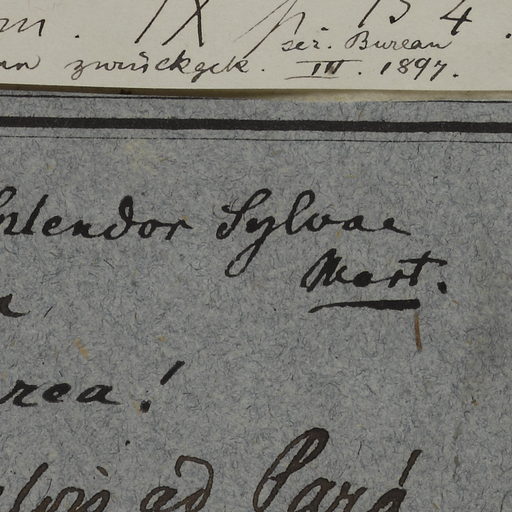 m. IX p. 154.
ser. Bureau
zurückgek. III. 1897.
Splendor Sylvae
Mart.
rea!
ad Pará